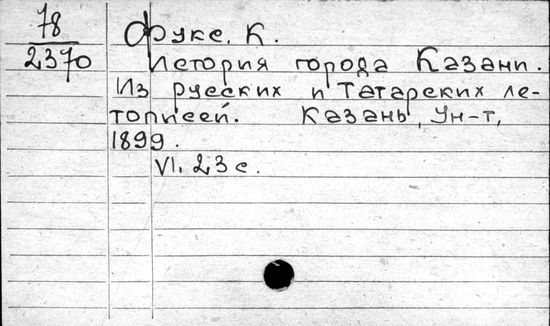 78
2370
Фукс, К.
История города Казани.
Из русских и татарских ле-
тописей. Казань, Ун-т,
1899.
VI, 23 с.